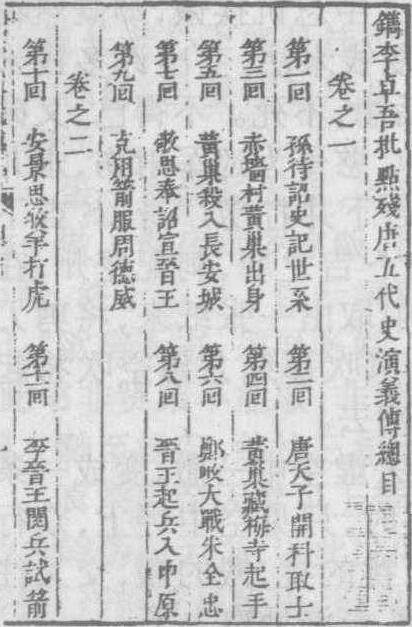 鐫李卓吾批點殘唐五代史演義傳總目
卷之一
第一回 孫待詔史記世系 第二回 唐天子開科取士
第三回 赤墻村黃巢出身 第四回 黃巢藏梅寺起手
第五回 黃巢殺入長安城 第六回 鄭畋大戰朱全忠
第七回 敬思奉詔宣晉王 第八回 晉王起兵入中原
第九回 克用箭服周德威
卷之二
第十回 安景思牧羊打虎 第十一回 李晉王閱兵試箭